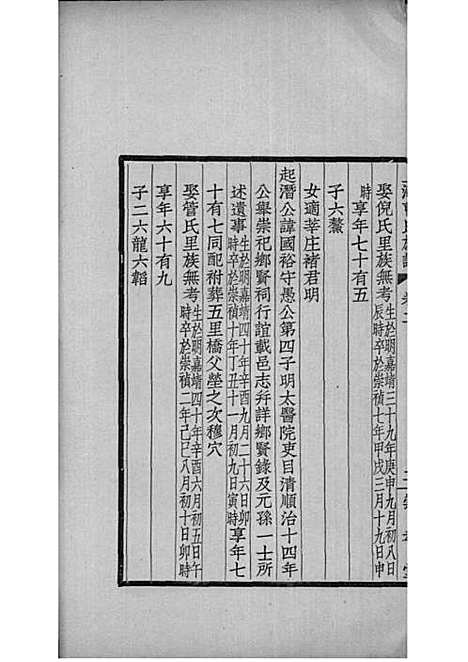 娶倪氏里族無考生於明嘉靖三十九年庚申九月初八日辰時卒於崇禎七年甲戌三月十九日申
時享年七十有五
子六鰲
女適莘庄褚君明
起潛公諱國裕守愚公第四子明太醫院吏目清順治十四年
公舉崇祀鄉賢祠行誼載邑志幷詳鄉賢錄及元孫一士所
述遺事生於明嘉靖四十年辛酉九月二十六日卯時卒於崇禎十年丁丑十一月初九日寅時享年七
十有七同配祔葬五里橋父塋之次穆穴
娶管氏里族無考生於明嘉靖四十年辛酉六月初五日午時卒於崇禎二年己巳八月初十日卯時
享年六十有九
子二六龍六韜